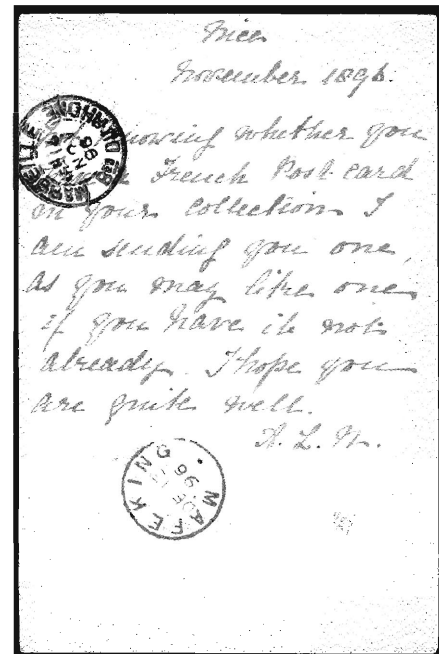 Nice
November 1896.
nowing whether you
French Post-card
in your collection I
am sending you one,
as you may like one
if you have it not
already. I hope you
are quite well.
A. L. N.
MAFEKING
96